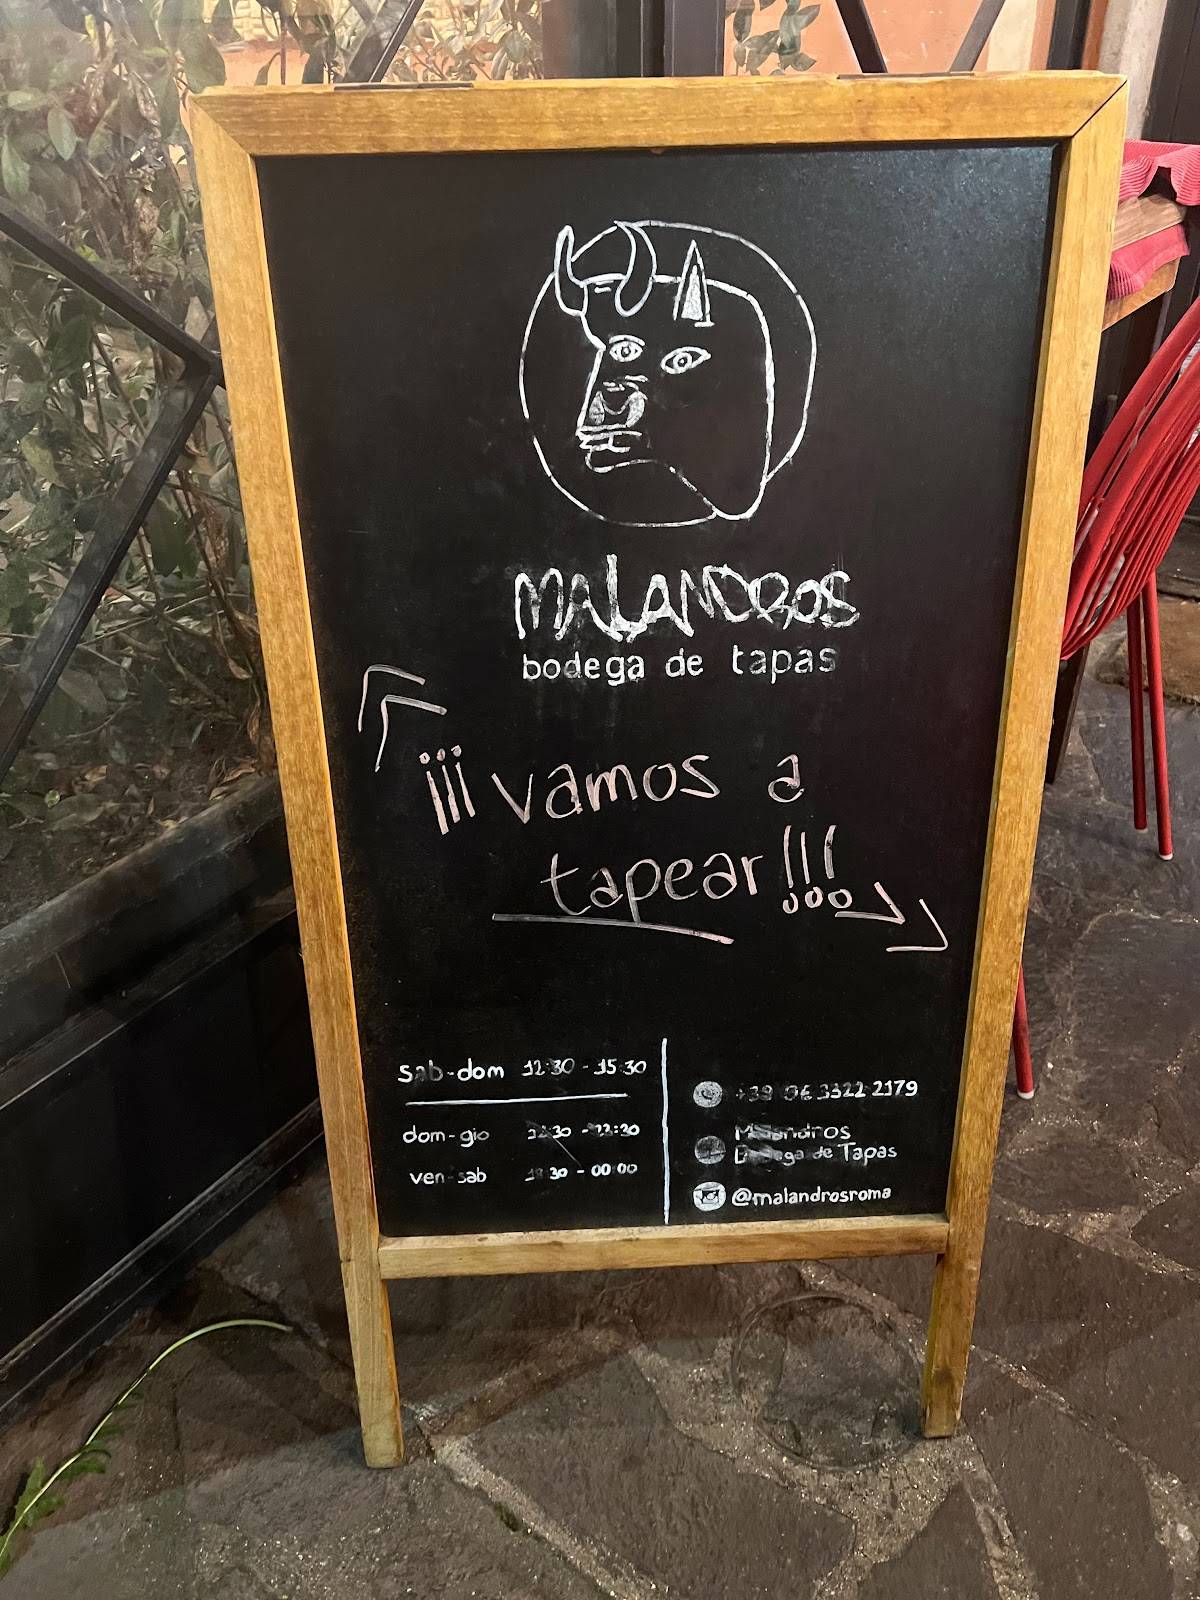 MALANDROS
bodega de tapas
¡¡¡vamos a
tapear!!!
sab-dom 12:30 - 15:30
dom-gio
ven-sab 18:30 - 00:00
3322 2179
Malandros
Bodega de Tapas
@malandrosroma